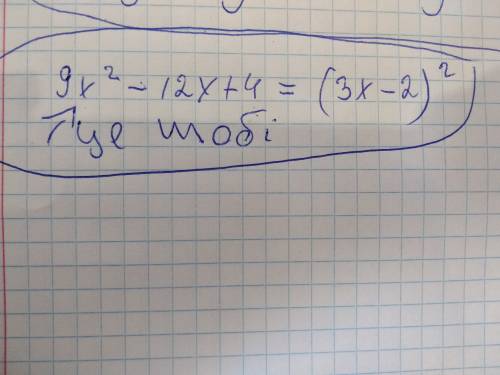 9x² - 12x + 4 = (3x - 2)²
↑ це тобі